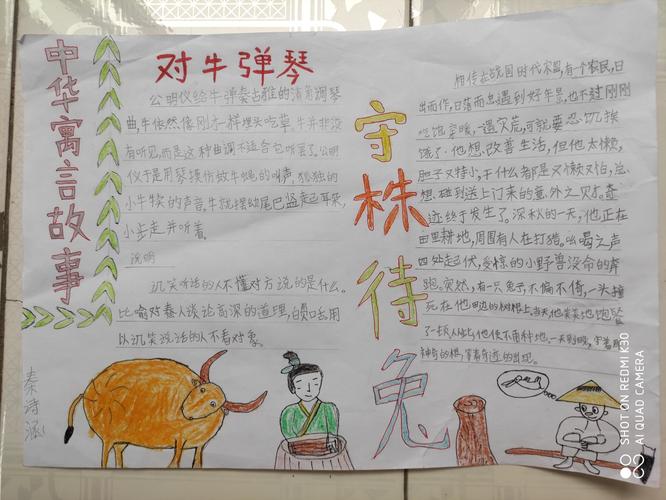 中华寓言故事
对牛弹琴
公明仪给牛弹奏古雅的清角调琴
曲,牛依然像刚才一样埋头吃草。牛并非没
有听见,而是这种曲调不适合它听罢了。公明
仪于是用琴模仿蚊牛蝇的叫声,孤独的
小牛犊的声音。牛就摆动尾巴竖起耳朵,
小步走并听着。
说明
讥笑听话的人不懂对方说的是什么。
比喻对蠢人谈论高深的道理,白费口舌用
以讥笑说话的人不看对象。
守株待兔
相传在战国时代宋国,有个农民,日
出而作,日落而息遇到好年景,也不过刚刚
吃饱穿暖,一遇灾荒,可就要忍饥挨
饿了。他想改善生活,但他太懒,
胆子又特小,干什么都是又懒又怕,总
想碰到送上门来的意外之财。奇
迹终于发生了。深秋的一天,他正在
田里耕地,周围有人在打猎。吆喝之声
四处起伏,受惊的小野兽没命的奔
跑。突然,有一只兔子不偏不倚,一头撞
死在他田边的树根上。当天他美美地饱餐
了一顿从此他便不再种地,一天到晚,守着那
神奇的根,等着奇迹的出现。
秦诗涵
SHOT ON REDMI K30
AI QUAD CAMERA